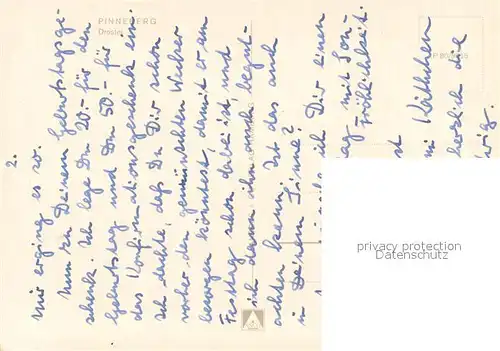 PINNEBERG
Drostei
2.
mir erging es so.
Nun zu Deinem Geburtstagsge-
schenk. Ich lege Dm 20.- für den
Geburtstag und Dm 50.- für
das Konfirmationsgeschenk ein.
Ich dachte, daß Du Dir schon
vorher den gewünschten Wecker
besorgen könntest, damit er am
Festtag schon dabei ist, und
ich dann ihn auch begut-
achten kann. Ist das auch
in Deinem Sinne?
ich Dir einen
tag - mit Son-
Fröhlichkeit.
st
mi Käthchen
herzlich die
privacy protection
Datenschutz